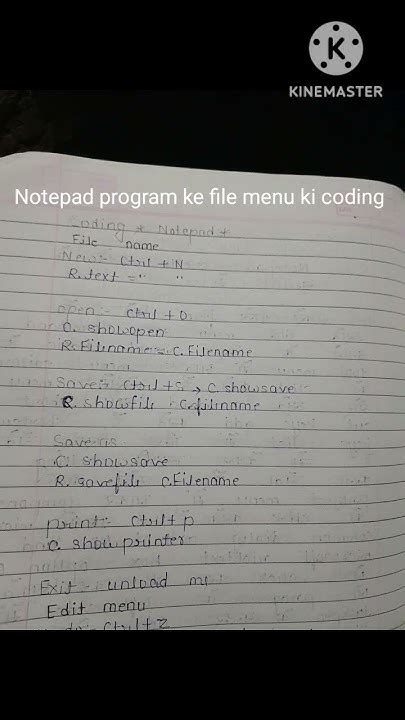 KINEMASTER
Notepad program ke file menu ki coding
Coding * Notepad *
File name
New:- Ctrl + N
R.text = " "
open:- Ctrl + O
C. showopen
R.Filename = C.Filename
Save:- Ctrl+S, C.showsave
R. showfile C.filename
Save as
C. showsave
R. savefile C.Filename
print:- Ctrl+p
C. show printer
Exit - unload me
Edit menu
Ctrl+Z